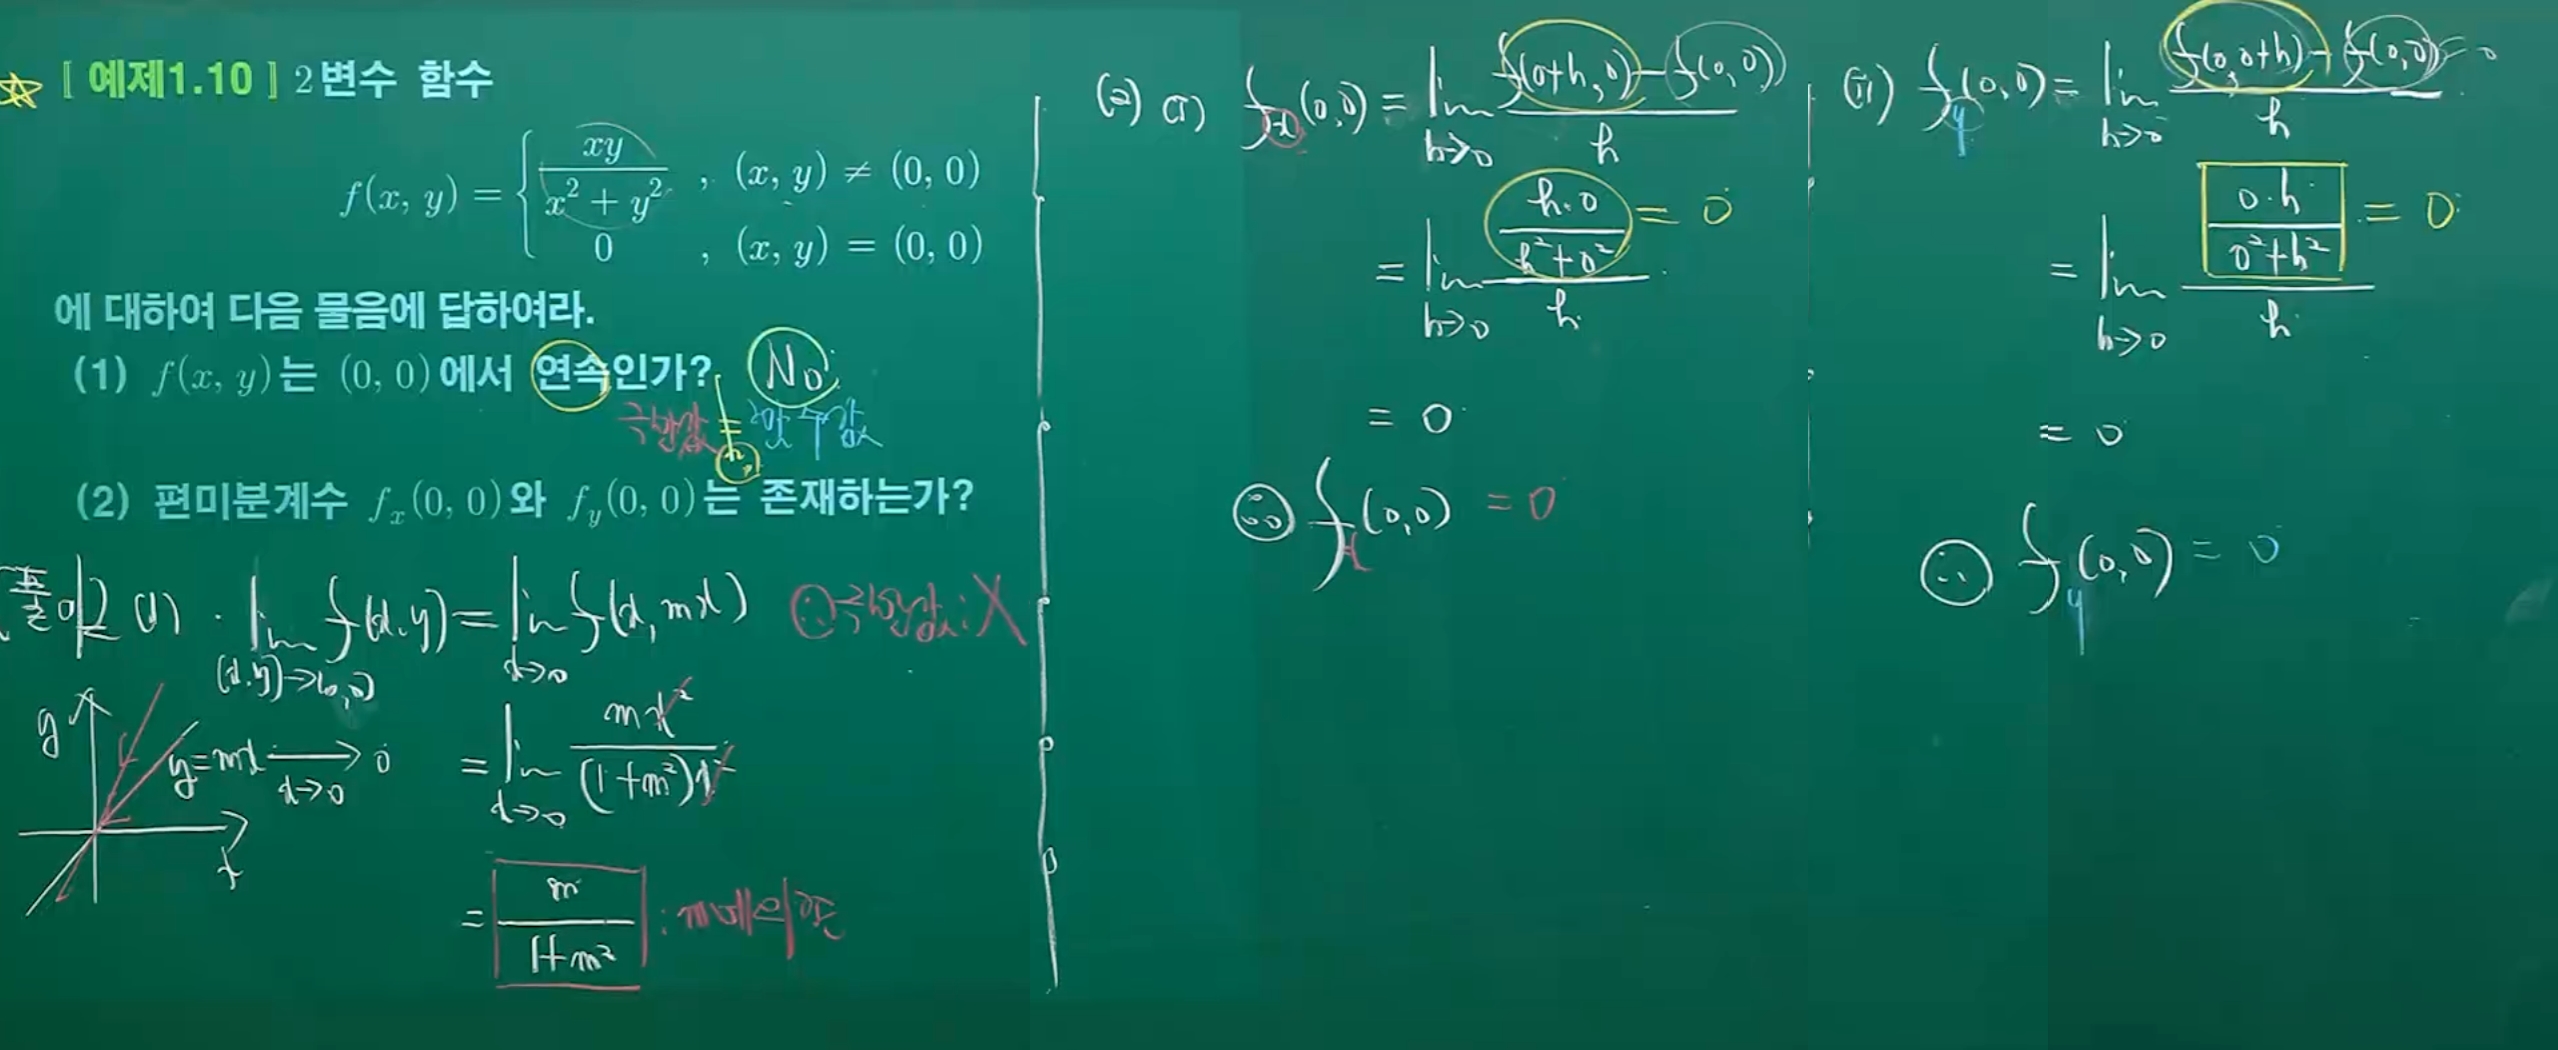 [ 예제1.10 ] 2변수 함수
f(x, y) = { xy / (x² + y²) , (x, y) ≠ (0, 0)
0 , (x, y) = (0, 0)
에 대하여 다음 물음에 답하여라.
(1) f(x, y)는 (0, 0)에서 연속인가? No
극한값 = 함수값
(2) 편미분계수 f_x(0, 0)와 f_y(0, 0)는 존재하는가?
풀이 (1) · lim (x,y)→(0,0) f(x,y) = lim x→0 f(x, mx) ∴ 극한값 : X
y
y=mx → 0
x→0
x
= lim x→0 mx² / (1+m²)x²
= m / 1+m² : m에 의존
(2) (i) f_x(0,0) = lim h→0 f(0+h, 0) - f(0,0) / h
= lim h→0 (h·0 / h²+0²) / h = 0
= 0
∴ f_x(0,0) = 0
(ii) f_y(0,0) = lim h→0 f(0, 0+h) - f(0,0) / h = 0
= lim h→0 (0·h / 0²+h²) / h = 0
= 0
∴ f_y(0,0) = 0